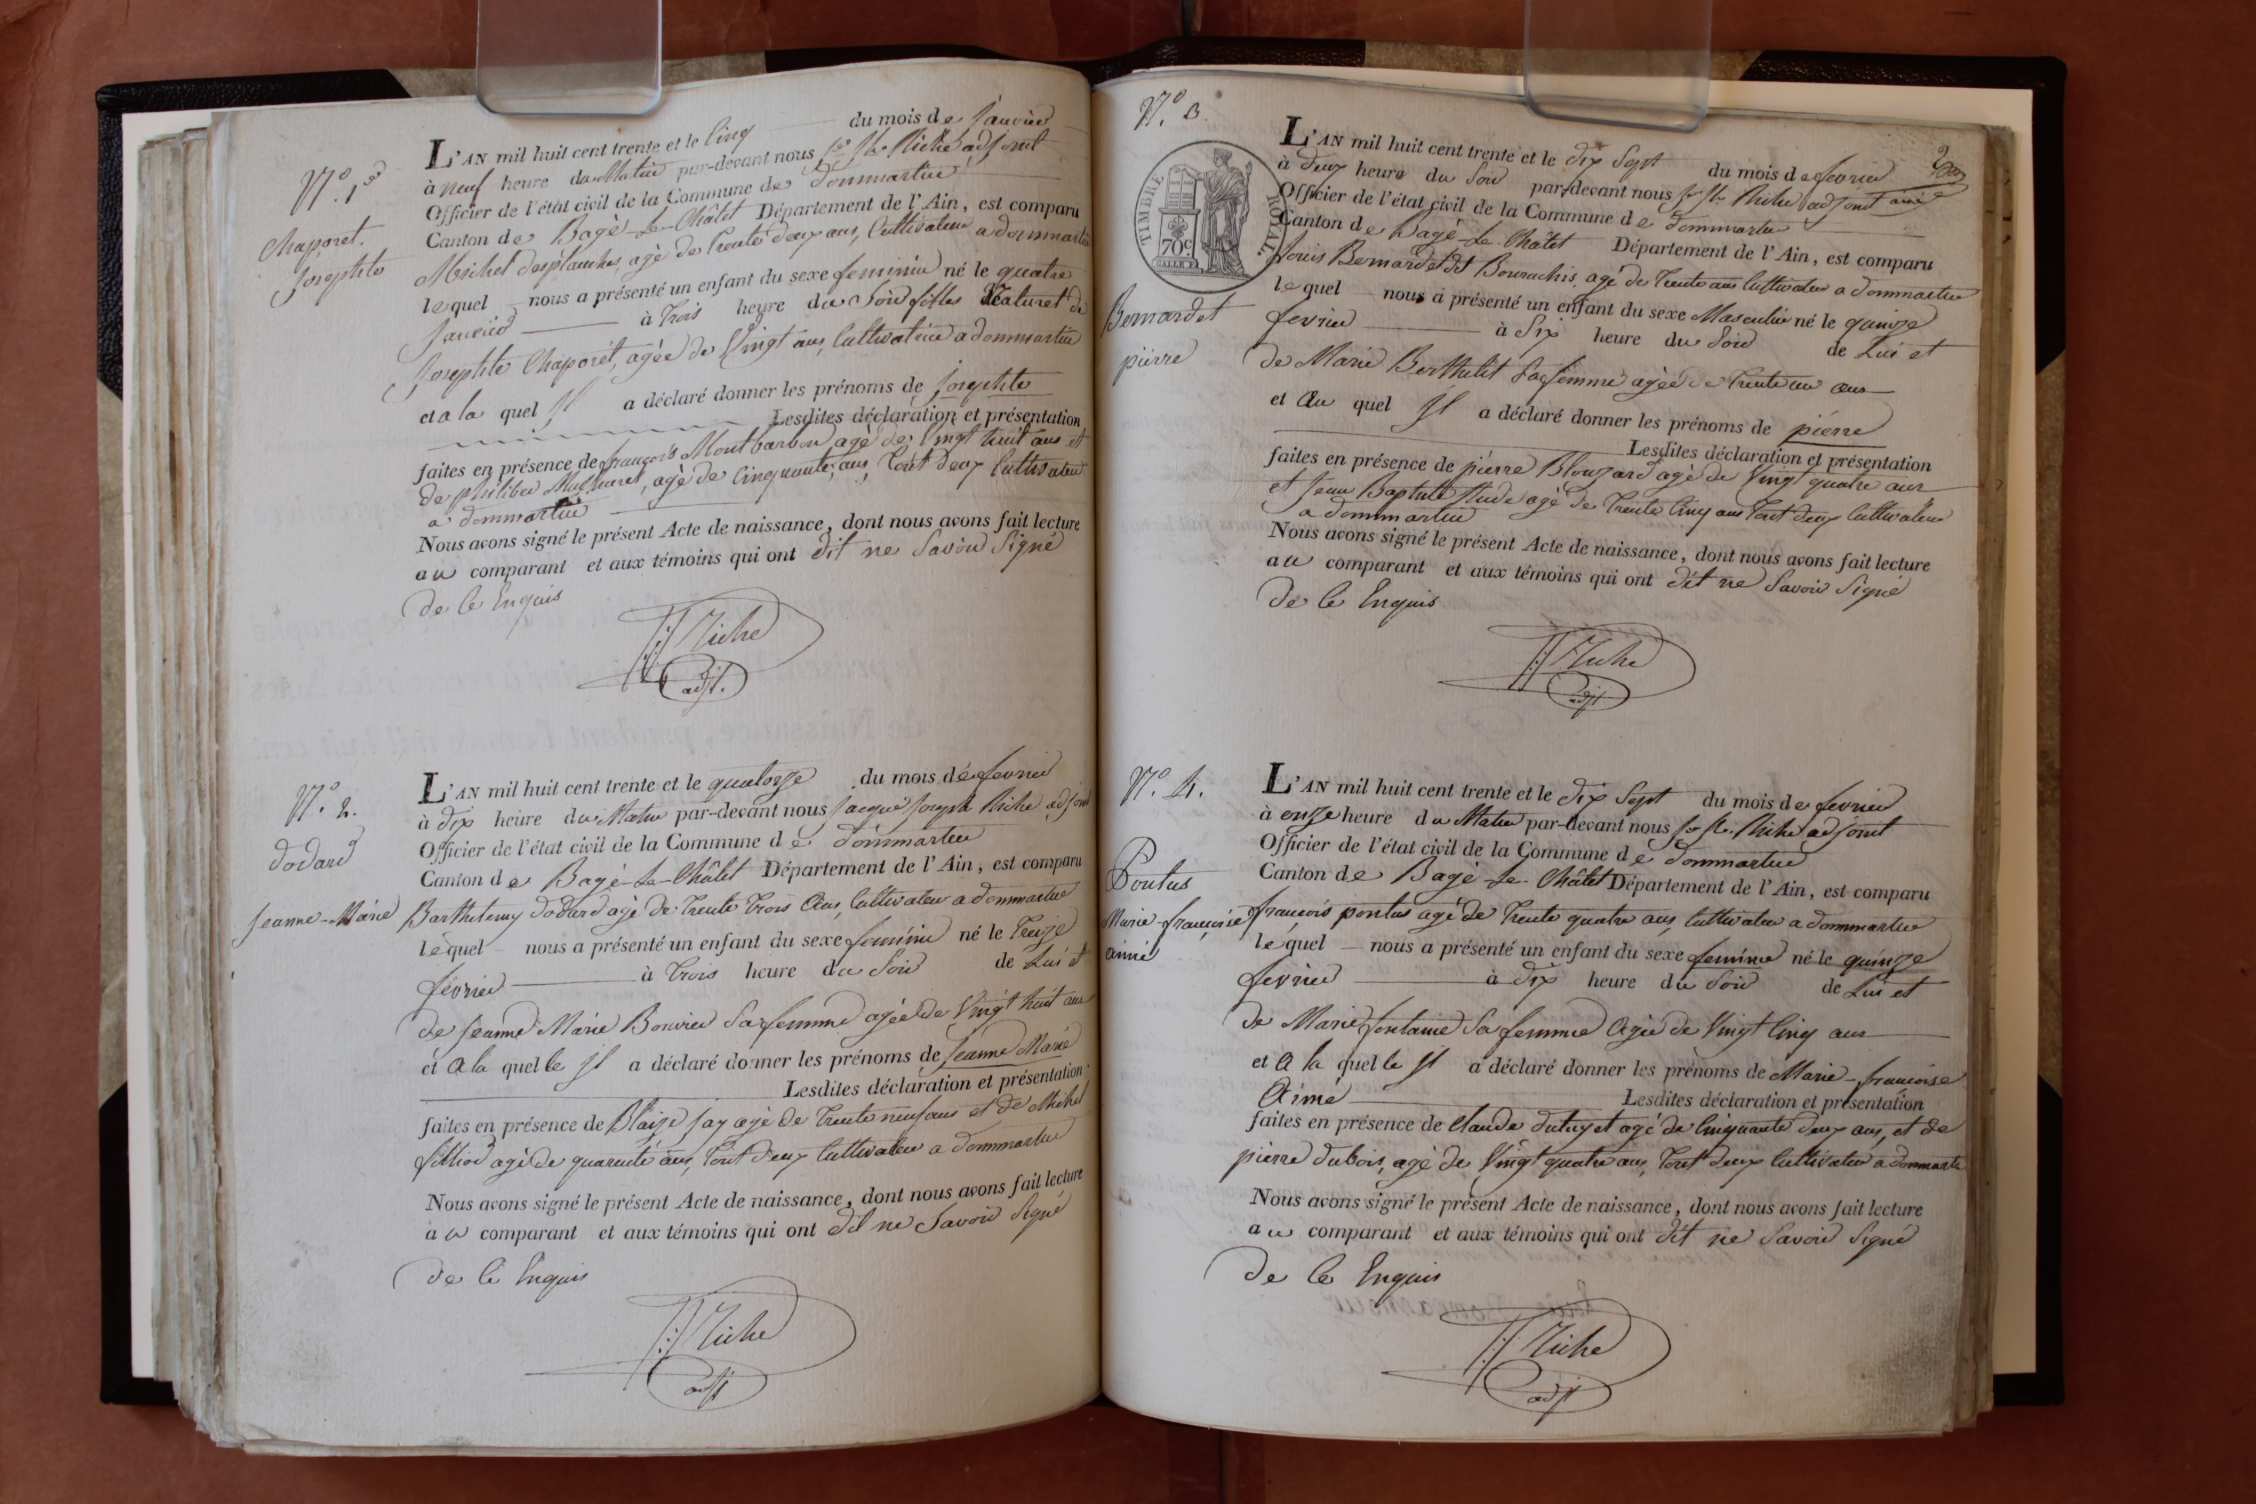 N.o 1er
Chaporet.
Josephte
L'AN mil huit cent trente et le Cinq du mois de Janvier
à neuf heure du Matin par-devant nous jh Riche adjoint
Officier de l'état civil de la Commune de Dommartin
Canton de Bagé-Le-Châtel Département de l'Ain, est comparu
Michel Desplanches agé de trente deux ans, Cultivateur a dommartin
lequel nous a présenté un enfant du sexe feminin né le quatre
Janvier à trois heure du Soir filles Naturel de
Josephte Chaporet, agée de Vingt ans, Cultivatrice a dommartin
et a la quel Jl a déclaré donner les prénoms de Josephte
Lesdites déclaration et présentation
faites en présence de françois Montbarbon agé de Vingt huit ans et
de philiber, agé de Cinquante, ans, tout deux Cultivateur
a dommartin
Nous avons signé le présent Acte de naissance, dont nous avons fait lecture
au comparant et aux témoins qui ont dit ne Savoir Signé
de Ce Enquis
Riche
adjt.
N.o 2.
dodard
Jeanne-Marie
L'AN mil huit cent trente et le quatorze du mois de fevrier
à dix heure du Matin par-devant nous Jacque Joseph Riche adjoint
Officier de l'état civil de la Commune de Dommartin
Canton de Bagé-Le-Châtel Département de l'Ain, est comparu
Barthelemy dodard agé de trente trois Ans, Cultivateur a dommartin
lequel nous a présenté un enfant du sexe feminin né le treize
février à trois heure du Soir de Lui et
de Jeanne Marie Bouvier Sa femme agée de Vingt huit ans
et A la quelle Jl a déclaré donner les prénoms de Jeanne Marie
Lesdites déclaration et présentation
faites en présence de Blaize Jay agé de trente neuf ans et de Michel
fillion agé de quarente ans, tout deux Cultivateur a dommartin
Nous avons signé le présent Acte de naissance, dont nous avons fait lecture
au comparant et aux témoins qui ont dit ne Savoir Signé
de Ce Enquis
Riche
adjt
N.o 3.
TIMBRE ROYAL
70c
Bernardet
pierre
2
L'AN mil huit cent trente et le dix Sept du mois de fevrier
à deux heure du Soir par-devant nous jh Riche adjoint
Officier de l'état civil de la Commune de Dommartin
Canton de Bagé-Le-Châtel Département de l'Ain, est comparu
Louis Bernardet dt Bourachis, agé de trente ans Cultivateur a dommartin
lequel nous a présenté un enfant du sexe Masculin né le quinze
fevrier à Six heure du Soir de Lui et
de Marie Berthelet Sa femme agée de trente un ans
et Au quel Jl a déclaré donner les prénoms de pierre
Lesdites déclaration et présentation
faites en présence de pierre Blouzard agé de Vingt quatre ans
et Jean Baptiste agé de trente Cinq ans tout deux Cultivateur
a dommartin
Nous avons signé le présent Acte de naissance, dont nous avons fait lecture
au comparant et aux témoins qui ont dit ne Savoir Signé
de Ce Enquis
Riche
adjt
N.o 4.
Pontus
Marie-françoise
aimé
L'AN mil huit cent trente et le dix Sept du mois de fevrier
à onze heure du Matin par-devant nous jh Riche adjoint
Officier de l'état civil de la Commune de Dommartin
Canton de Bagé-Le-Châtel Département de l'Ain, est comparu
françois pontus agé de trente quatre ans, Cultivateur a dommartin
lequel nous a présenté un enfant du sexe feminine né le quinze
fevrier à dix heure du Soir de Lui et
de Marie fontaine Sa femme Agée de Vingt Cinq ans
et A la quelle Jl a déclaré donner les prénoms de Marie-françoise
Aimé Lesdites déclaration et présentation
faites en présence de Claude dutuyet agé de Cinquante deux ans, et de
pierre Dubois, agé de Vingt quatre ans, tout deux Cultivateur a dommartin
Nous avons signé le présent Acte de naissance, dont nous avons fait lecture
au comparant et aux témoins qui ont dit ne Savoir Signé
de Ce Enquis
Riche
adjt